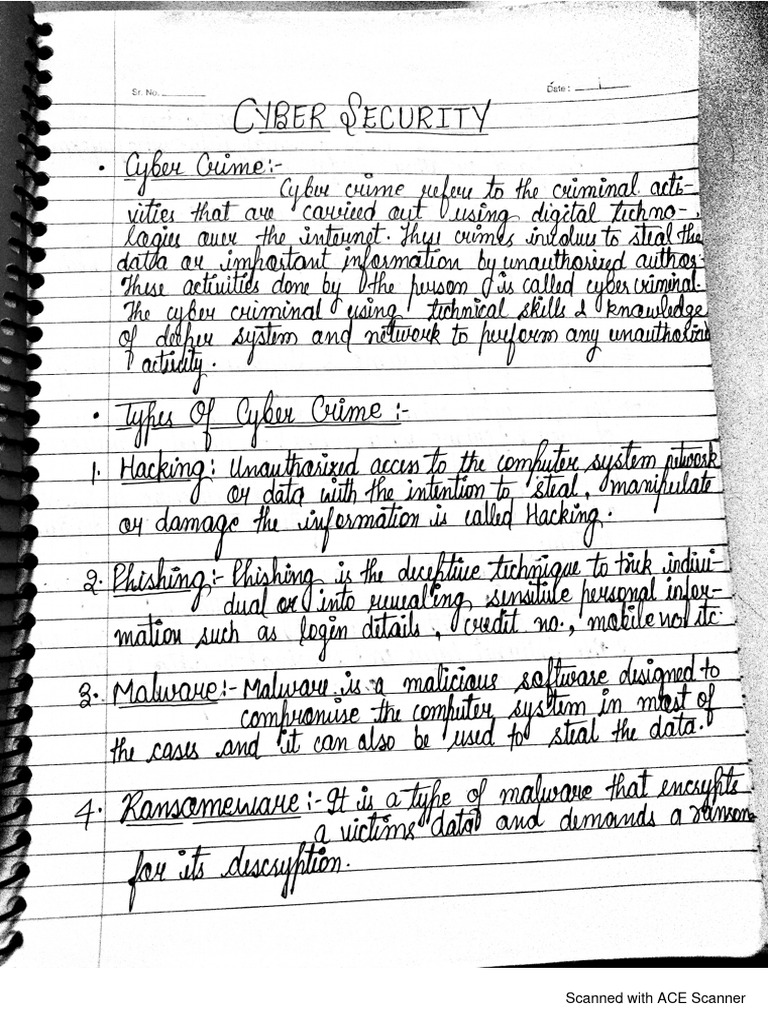 Sr. No.
Date :
CYBER SECURITY
• Cyber Crime:-
Cyber crime refere to the criminal acti-
vities that are carried out using digital techno-
logies over the internet. These crimes involves to steal the
data or important information by unauthorized author.
These activities done by the person is called cyber criminal.
The cyber criminal using technical skills & knowledge
of deeper system and network to perform any unauthorized
activity.
• Types Of Cyber Crime :-
1. Hacking: Unauthorized access to the computer system network
or data with the intention to steal, manipulate
or damage the information is called Hacking.
2. Phishing:- Phishing is the deceptive technique to trick indivi-
dual or into revealing sensitive personal infor-
mation such as login details, credit no., mobile no. etc
3. Malware:- Malware is a malicious software designed to
compromise the computer system in most of
the cases and it can also be used to steal the data.
4. Ransomeware:- It is a type of malware that encrypts
a victims data and demands a ransom
for its descryption.
Scanned with ACE Scanner